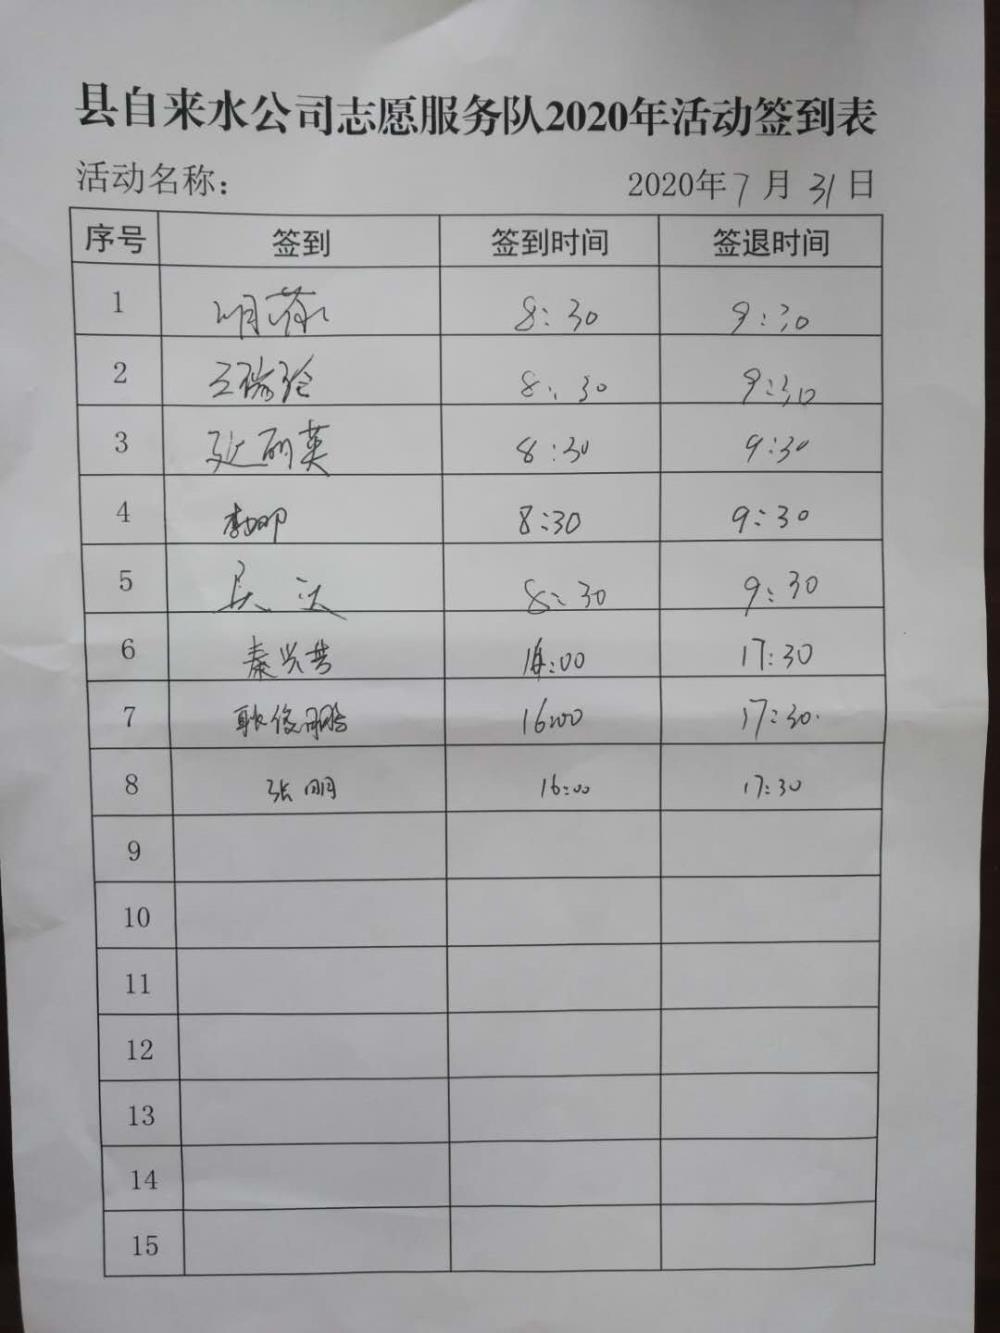 县自来水公司志愿服务队2020年活动签到表
活动名称： 2020年7月31日
序号 签到 签到时间 签退时间
1 8:30 9:30
2 王瑞玲 8:30 9:30
3 延丽英 8:30 9:30
4 8:30 9:30
5 8:30 9:30
6 秦兴芸 :00 17:30
7 耿俊鹏 16:00 17:30
8 张明 16:00 17:30
9
10
11
12
13
14
15